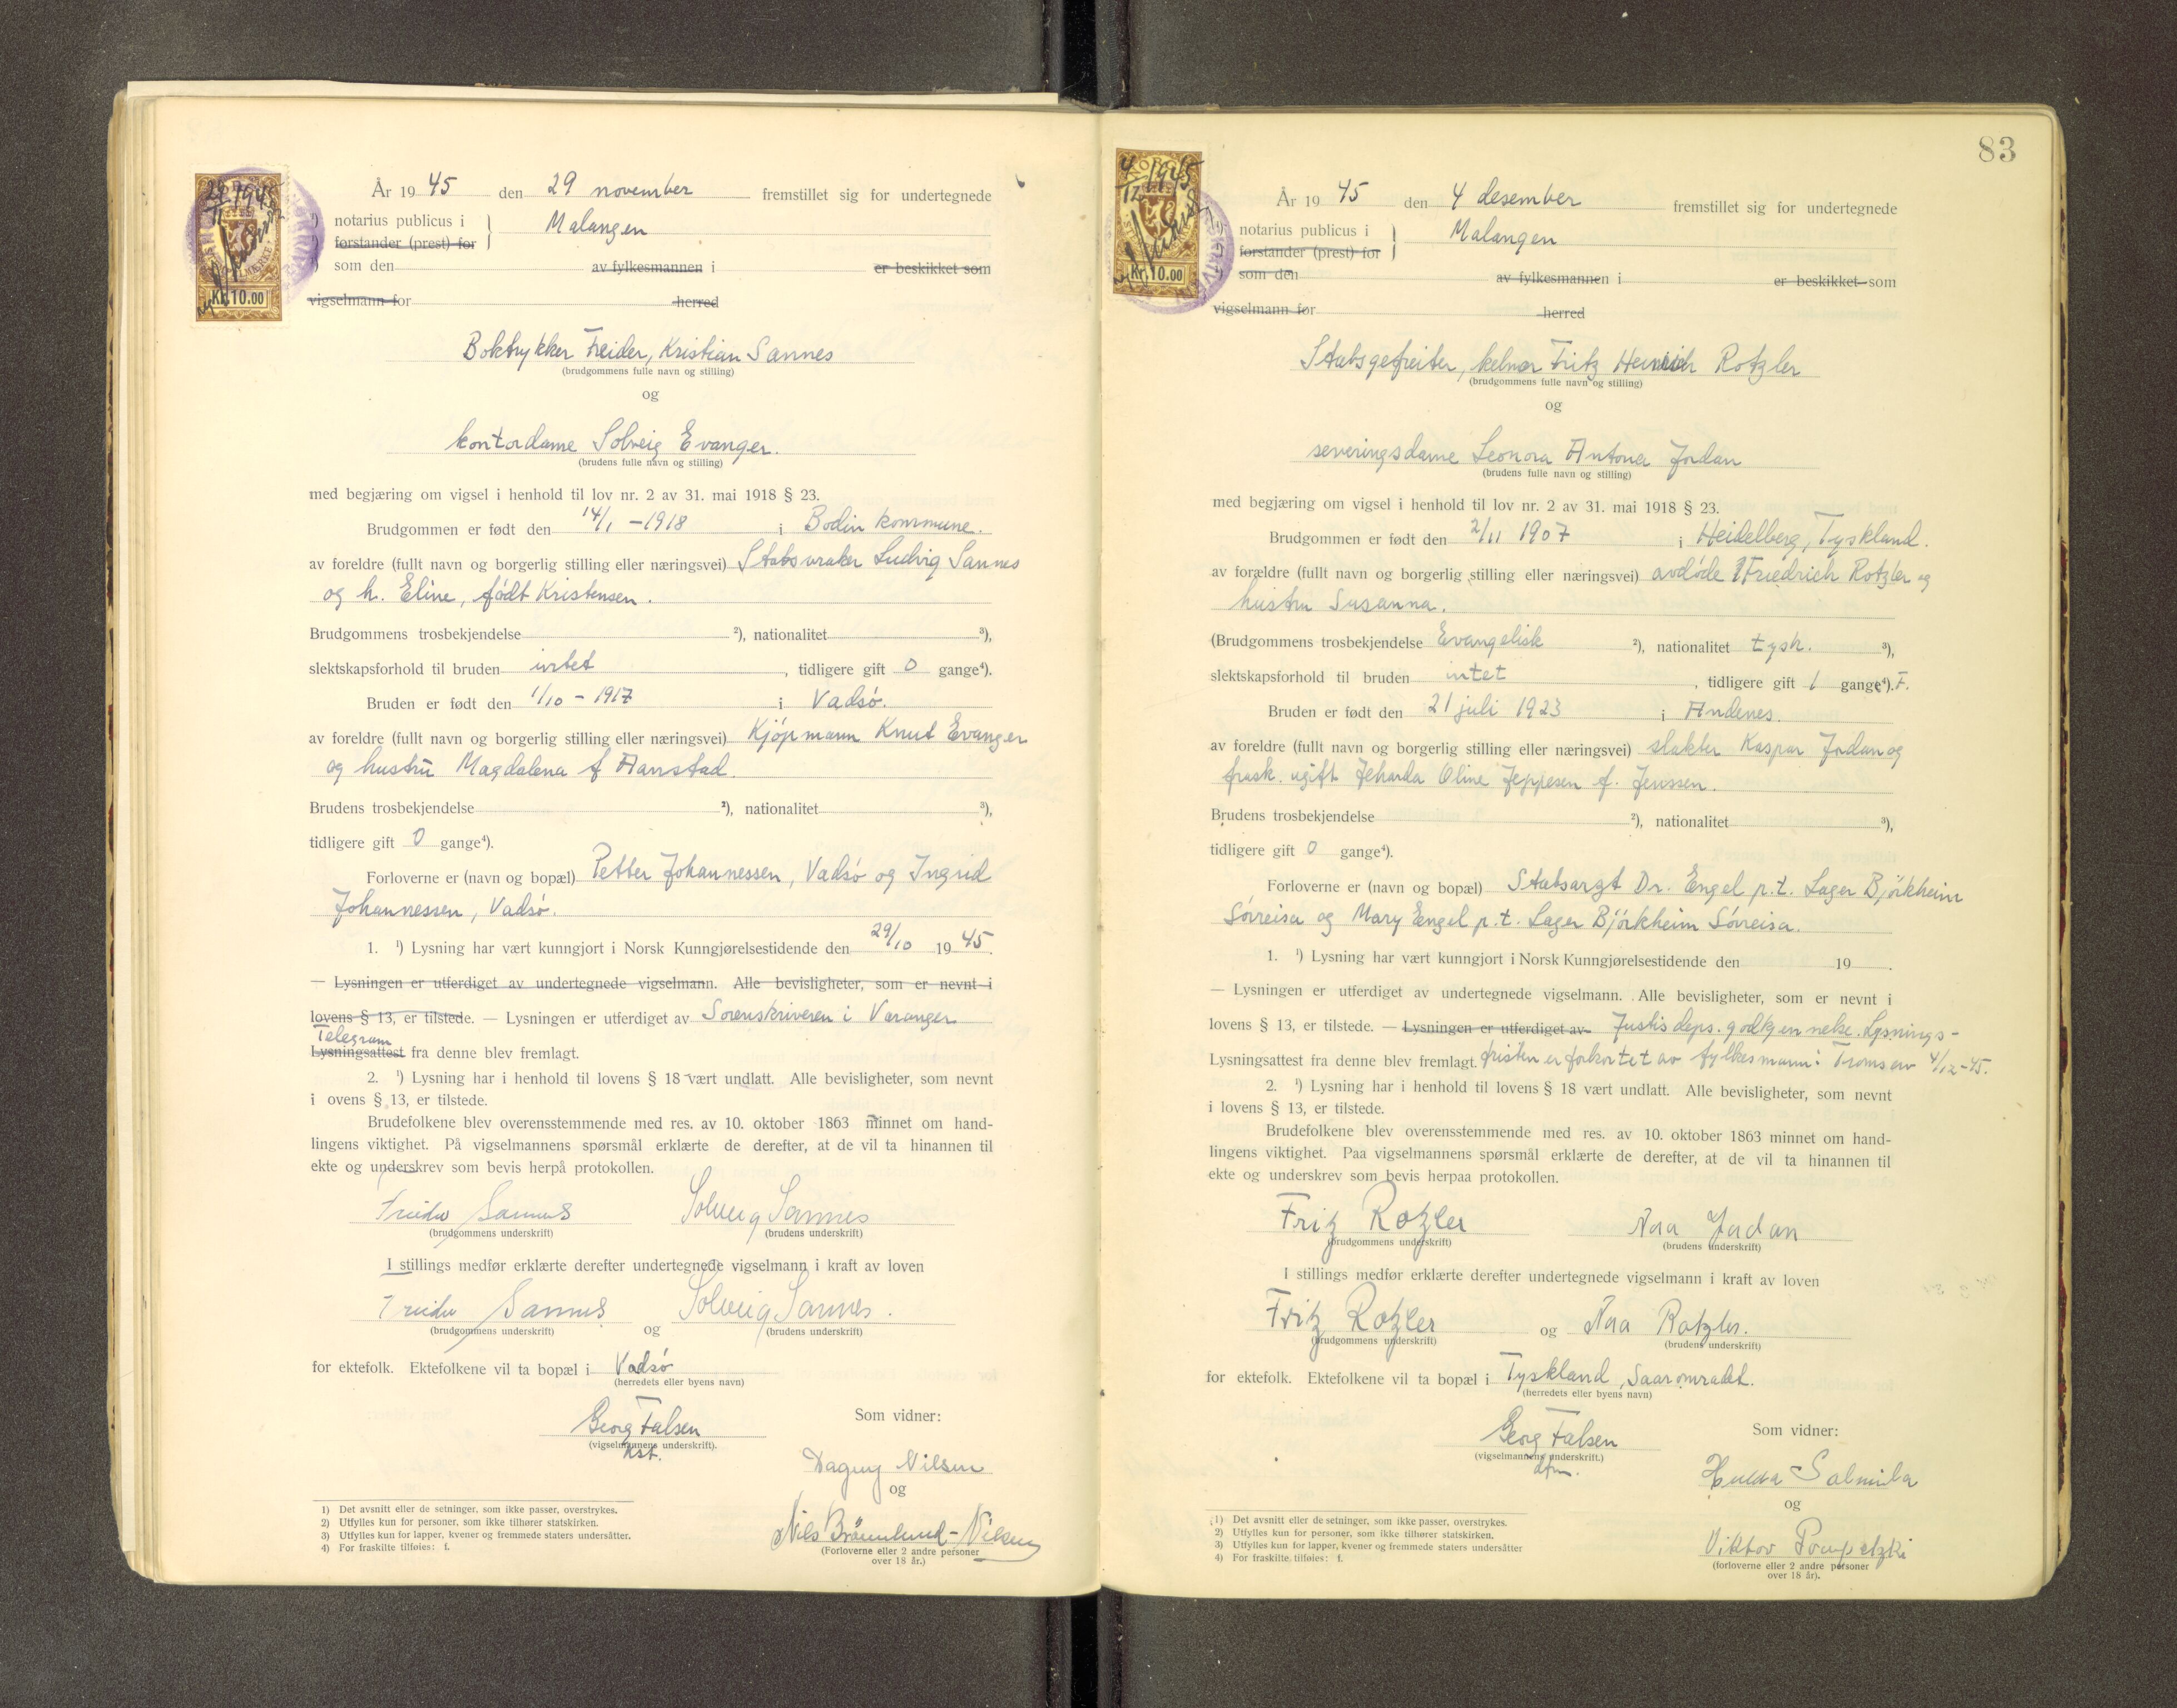 År 19 45 den 29 november fremstillet sig for undertegnede
notarius publicus i } Malangen
forstander (prest) for
som den av fylkesmannen i er beskikket som
vigselmann for herred
Kr. 10.00
Boktrykker Freider, Kristian Sannes
(brudgommens fulle navn og stilling)
og
kontordame Solveig Evanger.
(brudens fulle navn og stilling)
med begjæring om vigsel i henhold til lov nr. 2 av 31. mai 1918 § 23.
Brudgommen er født den 14/1 – 1918 i Bodin kommune.
av foreldre (fullt navn og borgerlig stilling eller næringsvei) Ludvig Sannes
og h. Eline, født Kristensen.
Brudgommens trosbekjendelse ²), nationalitet ³),
slektskapsforhold til bruden intet , tidligere gift 0 gange⁴).
Bruden er født den 1/10 – 1917 i Vadsø.
av foreldre (fullt navn og borgerlig stilling eller næringsvei) Kjøpmann Knut Evanger
og hustru Magdalena f Aanstad.
Brudens trosbekjendelse ²), nationalitet ³),
tidligere gift 0 gange⁴).
Forloverne er (navn og bopæl) Petter Johannessen, Vadsø og Ingrid
Johannessen, Vadsø.
1. ¹) Lysning har vært kunngjort i Norsk Kunngjørelsestidende den 29/10 19 45.
— Lysningen er utferdiget av undertegnede vigselmann. Alle bevisligheter, som er nevnt i
lovens § 13, er tilstede. — Lysningen er utferdiget av Sorenskriveren i Varanger
Telegram
Lysningsattest fra denne blev fremlagt.
2. ¹) Lysning har i henhold til lovens § 18 vært undlatt. Alle bevisligheter, som nevnt
i ovens § 13, er tilstede.
Brudefolkene blev overensstemmende med res. av 10. oktober 1863 minnet om hand-
lingens viktighet. På vigselmannens spørsmål erklærte de derefter, at de vil ta hinannen til
ekte og underskrev som bevis herpå protokollen.
Freider Sannes Solveig Sannes
(brudgommens underskrift) (brudens underskrift)
I stillings medfør erklærte derefter undertegnede vigselmann i kraft av loven
Freider Sannes Solveig Sannes.
(brudgommens underskrift) og (brudens underskrift)
for ektefolk. Ektefolkene vil ta bopæl i Vadsø
(herredets eller byens navn)
Georg Falsen
(vigselmannens underskrift).
kst.
Som vidner:
Dagny Nilsen
og
Nils Brännlund-Nilsen
(Forloverne eller 2 andre personer
over 18 år.)
1) Det avsnitt eller de setninger, som ikke passer, overstrykes.
2) Utfylles kun for personer, som ikke tilhører statskirken.
3) Utfylles kun for lapper, kvener og fremmede staters undersåtter.
4) For fraskilte tilføies: f.
83
År 19 45 den 4 desember fremstillet sig for undertegnede
notarius publicus i } Malangen
forstander (prest) for
som den av fylkesmannen i er beskikket som
vigselmann for herred
Kr. 10.00
Stabsgefreiter, kelner Fritz Heinrich Rotzler
(brudgommens fulle navn og stilling)
og
severingsdame Leonora Antona Jordan
(brudens fulle navn og stilling)
med begjæring om vigsel i henhold til lov nr. 2 av 31. mai 1918 § 23.
Brudgommen er født den 2/11 1907 i Heidelberg, Tyskland.
av forældre (fullt navn og borgerlig stilling eller næringsvei) avdøde Friedrich Rotzler og
hustru Susanna.
(Brudgommens trosbekjendelse Evangelisk ²), nationalitet tysk. ³),
slektskapsforhold til bruden intet , tidligere gift 1 gange⁴). F.
Bruden er født den 21 juli 1923 i Andenes.
av foreldre (fullt navn og borgerlig stilling eller næringsvei) slakter Kaspar Jordan og
frask. ugift Jeharda Oline Jeppesen f. Jenssen.
Brudens trosbekjendelse ²), nationalitet ³),
tidligere gift 0 gange⁴).
Forloverne er (navn og bopæl) Stabsarzt Dr. Engel p.t. Lager Bjørkheim
Sørreisa og Mary Engel p.t. Lager Bjørkheim Sørreisa.
1. ¹) Lysning har vært kunngjort i Norsk Kunngjørelsestidende den 19 .
— Lysningen er utferdiget av undertegnede vigselmann. Alle bevisligheter, som er nevnt i
lovens § 13, er tilstede. — Lysningen er utferdiget av Justisdeps. godkjennelse. Lysnings-
Lysningsattest fra denne blev fremlagt. fristen er forkortet av fylkesmann i Troms av 4/12-45.
2. ¹) Lysning har i henhold til lovens § 18 vært undlatt. Alle bevisligheter, som nevnt
i lovens § 13, er tilstede.
Brudefolkene blev overensstemmende med res. av 10. oktober 1863 minnet om hand-
lingens viktighet. Paa vigselmannens spørsmål erklærte de derefter, at de vil ta hinannen til
ekte og underskrev som bevis herpaa protokollen.
Fritz Rotzler Nora Jordan
(brudgommens underskrift) (brudens underskrift)
I stillings medfør erklærte derefter undertegnede vigselmann i kraft av loven
Fritz Rotzler og Nora Rotzler.
(brudgommens underskrift) (brudens underskrift)
for ektefolk. Ektefolkene vil ta bopæl i Tyskland, Saarområdet.
(herredets eller byens navn)
Georg Falsen
(vigselmannens underskrift.)
dfm.
Som vidner:
Hulda Salmila
og
Viktor Pompetzki
(forloverne eller 2 andre personer
over 18 år).
1) Det avsnitt eller de setninger, som ikke passer, overstrykes.
2) Utfylles kun for personer, som ikke tilhører statskirken.
3) Utfylles kun for lapper, kvener og fremmede staters undersåtter
4) For fraskilte tilføies: f.